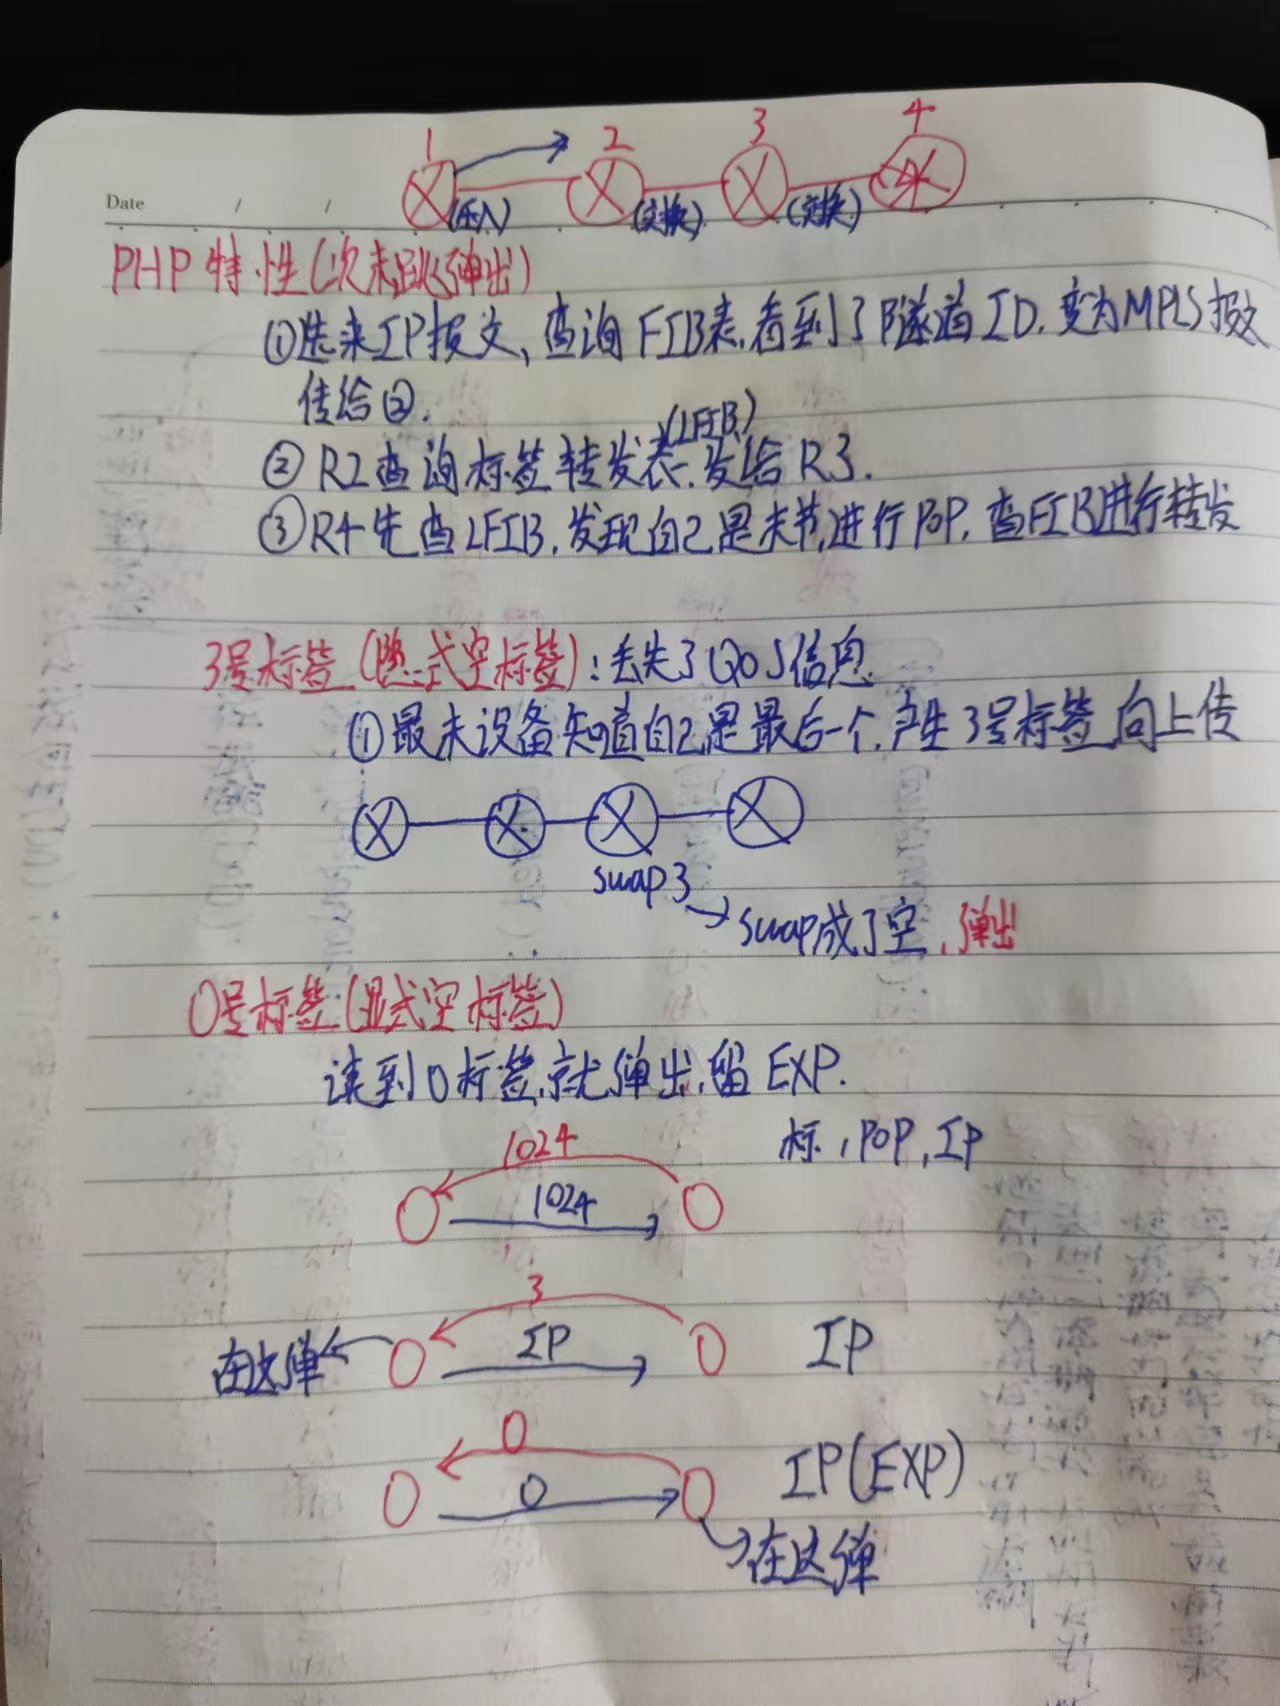 1 2 3 4
Date / /
(压入) (交换) (交换)
PHP特性(次末跳弹出)
①进来IP报文、查询FIB表,看到了隧道ID,变为MPLS报文
传给②.
(LFIB)
② R2查询标签转发表,发给R3.
③R4先查LFIB,发现自己是末节,进行POP,查FIB进行转发
3号标签(隐式空标签):丢失了QoS信息
①最末设备知道自己是最后一个,产生3号标签,向上传
swap3
swap成了空,弹出
0号标签(显式空标签)
读到0标签,就弹出,留EXP.
标,POP,IP
1024
1024
3
在这弹 IP IP
0
0 IP(EXP)
在这弹